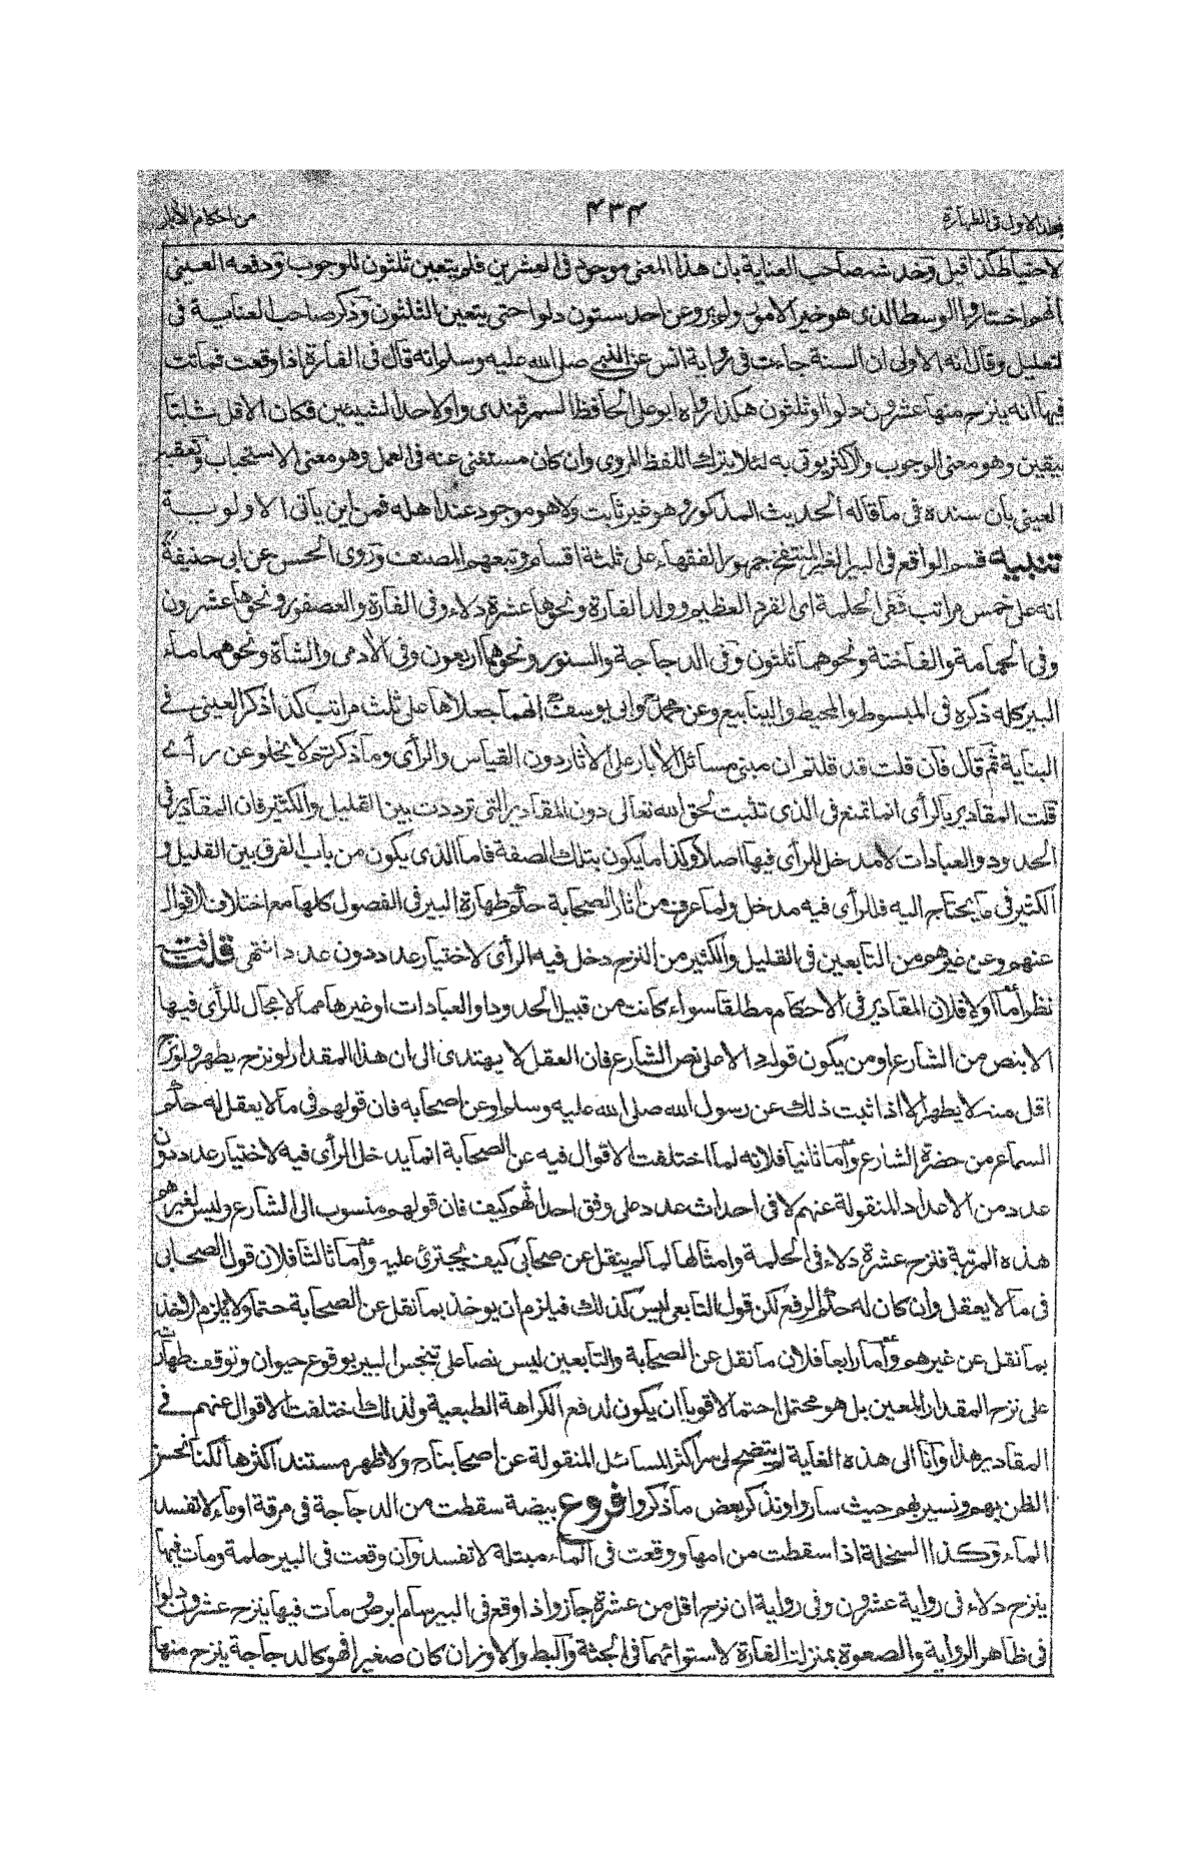 المجلد الاول فى الطهارة ۴۳۴ من احكام الآبار
لاحتياط كذا قيل وخدشه صاحب العناية بان هذا المعنى موجود فى العشرين فلم يتعين ثلثون للوجوب ودفعه العينى
انهم اختاروا الوسط الذى هو خير الامور ولم يرو عن احد ستون دلوا حتى يتعين الثلثون وذكر صاحب العناية فى
لتعليل وقال انه الاولى ان السنة جاءت فى رواية انس عن النبى صلى الله عليه وسلم انه قال فى الفارة اذا وقعت فماتت
فيها انه ينزح منها عشرون دلوا او ثلثون هكذا رواه ابو على الحافظ السمرقندى واو لاحد الشيئين فكان الاقل ثابتا
بيقين وهو معنى الوجوب والاكثر يوتى به لئلا يترك اللفظ المروى وان كان مستغنى عنه فى العمل وهو معنى الاستحباب وتعقبه
العينى بان سنده فى ما قاله الحديث المذكور وهو غير ثابت ولا هو موجود عند اهله فمن اين ياتى الاولوية
تنبيه قسم الواقع فى البير الغير المنتفخ جمهور الفقهاء على ثلثة اقسام وتبعهم المصنف وروى الحسن عن ابى حنيفة
انه على خمس مراتب ففى الحلمة اى القرد العظيم وولد الفارة ونحوها عشرة دلاء وفى الفارة والعصفور ونحوها عشرون
وفى الحمامة والفاختة ونحوهما ثلثون وفى الدجاجة والسنور ونحوهما اربعون وفى الآدمى والشاة ونحوهما ماء
البير كله ذكره فى المبسوط والمحيط والينابيع وعن محمد وابى يوسف انهما جعلاها على ثلث مراتب كذا ذكر العينى فى
البناية ثم قال فان قلت قد قلتم ان مبنى مسائل الآبار على الآثار دون القياس والرأى وما ذكرتم لا يخلو عن رأى
قلت المقادير بالرأى انما تمنع فى الذى تثبت لحق الله تعالى دون المقادير التى ترددت بين القليل والكثير فان المقادير فى
الحدود والعبادات لا مدخل للرأى فيها اصلا وكذا ما يكون بتلك الصفة فاما الذى يكون من باب الفرق بين القليل و
الكثير فى ما يحتاج اليه فللرأى فيه مدخل ولما عرف من آثار الصحابة حكم طهارة البير فى الفصول كلها مع اختلاف الاقوال
عنهم وعن غيرهم من التابعين فى القليل والكثير من النزح دخل فيه الرأى لاختيار عدد دون عدد انتهى قلت فيه
نظر أما اولا فلان المقادير فى الاحكام مطلقا سواء كانت من قبيل الحدود او العبادات او غيرها مما لا مجال للرأى فيها
الا بنص من الشارع او من يكون قوله دالا على نص الشارع فان العقل لا يهتدى الى ان هذا المقدار لو نزح يطهر ولو نزح
اقل منه لا يطهر الا اذا ثبت ذلك عن رسول الله صلى الله عليه وسلم او عن اصحابه فان قولهم فى ما لا يعقل له حكم
السماع من حضرة الشارع واما ثانيا فلانه لما اختلفت الاقوال فيه عن الصحابة انما يدخل الرأى فيه لاختيار عدد دون
عدد من الاعداد المنقولة عنهم لا فى احداث عدد على وفق احداثهم كيف فان قولهم منسوب الى الشارع وليس لغيرهم
هذه المرتبة فنزح عشرة دلاء فى الحلمة وامثالها لما لم ينقل عن صحابى كيف يجترئ عليه واما ثالثا فلان قول الصحابى
فى ما لا يعقل وان كان له حكم الرفع لكن قول التابعى ليس كذلك فيلزم ان يوخذ بما نقل عن الصحابة حتما ولا يلزم الاخذ
بما نقل عن غيرهم وأما رابعا فلان ما نقل عن الصحابة والتابعين ليس نصا على تنجس البير بوقوع حيوان وتوقف طهارته
على نزح المقدار المعين بل هو محتمل احتمالا قويا ان يكون لدفع الكراهة الطبعية ولذلك اختلفت الاقوال عنهم فى
المقادير هذا وانا الى هذه الغاية لم يتضح لى سر اكثر المسائل المنقولة عن اصحابنا ولا ظهر مستند اكثرها لكنا نحسن
الظن بهم ونسير بهم حيث ساروا ونذكر بعض ما ذكروا فروع بيضة سقطت من الدجاجة فى مرقة او ماء لا تفسد
الماء وكذا السخلة اذا سقطت من امها ووقعت فى الماء مبتلة لا تفسد وان وقعت فى البير حلمة ومات فيها
ينزح دلاء فى رواية عشرون وفى رواية ان نزح اقل من عشرة جاز واذا وقع فى البير سام ابرص ومات فيها ينزح عشرون دلوا
فى ظاهر الرواية والصعوة بمنزلة الفارة لاستوائهما فى الجثة والبط والاوز ان كان صغيرا فهو كالدجاجة ينزح منها